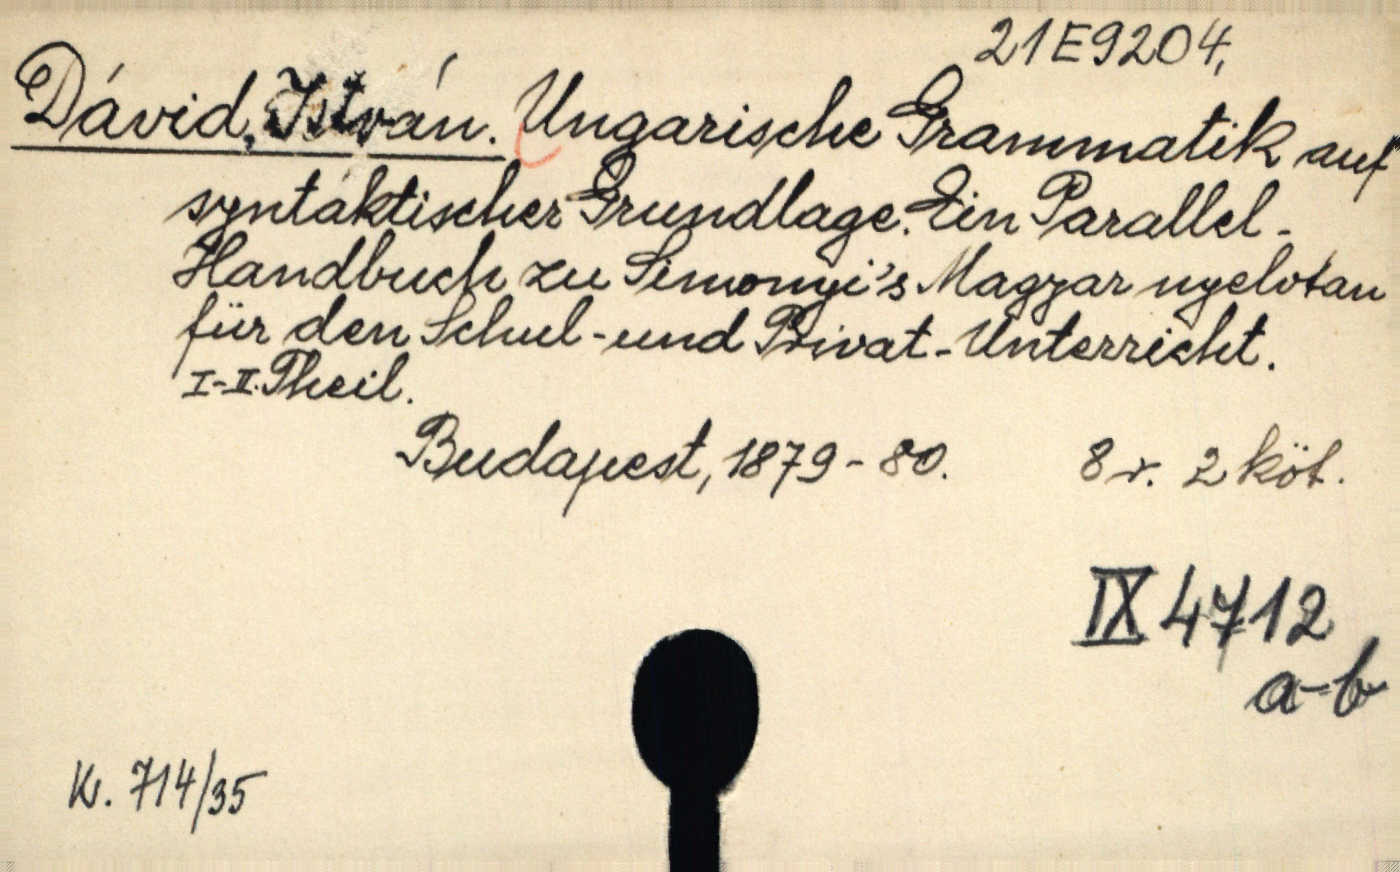 21E9204,
Dávid, István. Ungarische Grammatik auf
syntaktischer Grundlage. Ein Parallel-
Handbuch zu Simonyi's Magyar nyelvtan
für den Schul- und Privat-Unterricht.
I-II. Theil.
Budapest, 1879-80. 8 r. 2 köt.
IX 4712
a-b
K. 714/35